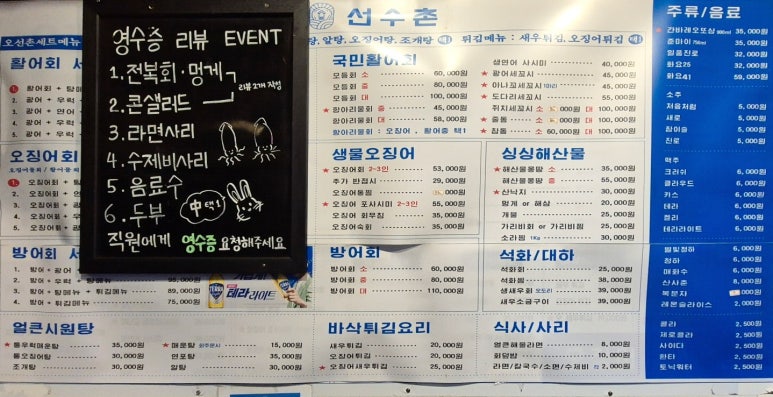 선수촌
오선셋트메뉴
탕, 알탕, 오징어탕, 조개탕
튀김메뉴 : 새우튀김, 오징어튀김
영수증 리뷰 EVENT
1. 전복회·멍게
2. 콘샐러드
리뷰 2개 작성
3. 라면사리
4. 수제비사리
5. 음료수
6. 두부
中 택1
직원에게 영수증 요청해주세요
활어회
오징어회
1. 오징어회 +
2. 오징어회 +
3. 오징어회 +
방어회
1. 방어 +
2. 방어 +
3. 방어 + 튀김메뉴 + 89,000원
4. 방어 + 튀김메뉴 75,000원
TERRA
테라 라이트
얼큰시원탕
통우럭매운탕 35,000원
통오징어탕 30,000원
조개탕 30,000원
매운탕 회주문시 15,000원
연포탕 35,000원
알탕 30,000원
국민활어회
모듬회 소 60,000원
모듬회 중 80,000원
모듬회 대 100,000원
항아리물회 중 45,000원
항아리물회 대 58,000원
항아리물회 : 오징어, 활어중 택1
생연어 사시미 40,000원
광어세꼬시 45,000원
아나꼬세꼬시 1마리 45,000원
도다리세꼬시 55,000원
쥐치세꼬시 소 대 100,000원
줄돔 소 대 100,000원
참돔 소 60,000원 대 100,000원
생물오징어
오징어회 2~3인 53,000원
추가 반접시 29,000원
오징어통찜
오징어 포사시미 2~3인 55,000원
오징어 회무침 35,000원
오징어숙회 35,000원
싱싱해산물
해산물통팡 소 35,000원
해산물통팡 중 55,000원
산낙지 30,000원
멍게 or 해삼 20,000원
개불 25,000원
가리비회 or 가리비찜 25,000원
소라찜 1Kg 30,000원
방어회
방어회 소 60,000원
방어회 중 80,000원
방어회 대 110,000원
석화/대하
석화회 25,000원
석화찜 38,000원
생새우회 39,000원
새우소금구이 39,000원
바삭튀김요리
새우튀김 20,000원
오징어튀김 20,000원
오징어새우튀김 25,000원
식사/사리
얼큰해물라면 8,000원
회덮밥 10,000원
라면/칼국수/소면/수제비 각 2,000원
주류/음료
35,000원
준마이 750ml 35,000원
일품진로 32,000원
화요25 32,000원
화요41 59,000원
소주
처음처럼 5,000원
새로 5,000원
참이슬 5,000원
진로 5,000원
맥주
크러쉬 5,000원
클라우드 5,000원
카스 5,000원
테라 5,000원
켈리 5,000원
테라라이트 5,000원
별빛청하 6,000원
청하 6,000원
매화수 6,000원
산사춘 8,000원
복분자
레몬슬라이스 2,000원
콜라 2,500원
제로콜라 2,500원
사이다 2,500원
환타 2,500원
토닉워터 2,500원